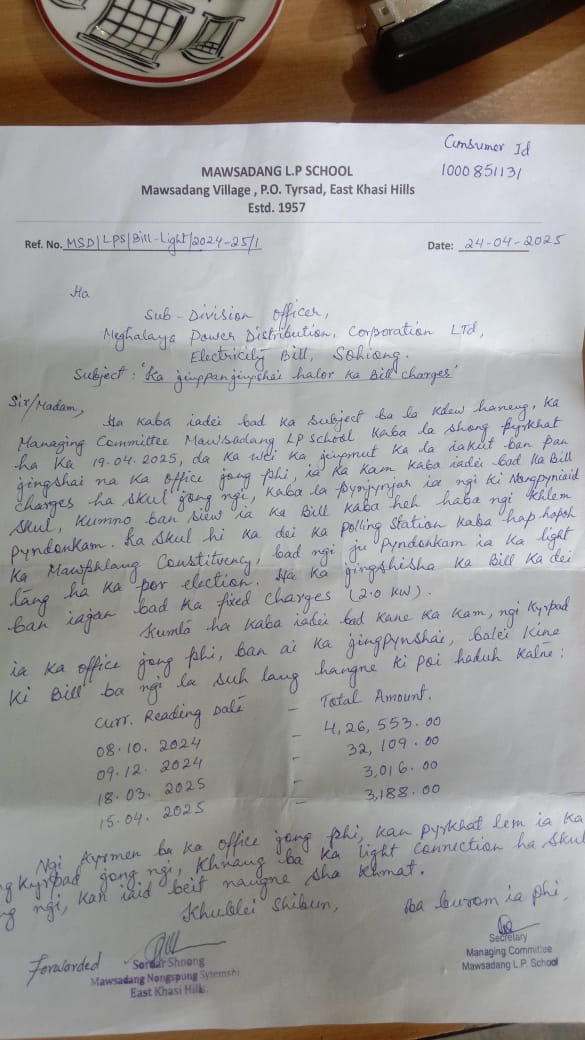 Consumer Id
1000851131
MAWSADANG L.P SCHOOL
Mawsadang Village , P.O. Tyrsad, East Khasi Hills
Estd. 1957
Ref. No. MSD/LPS/Bill-Light/2024-25/1
Date: 24-04-2025
Ha
Sub-Division officer,
Meghalaya Power Distribution, Corporation LTd,
Electricity Bill, Sohiong.
Subject : 'Ka jingpanjingshai halor ka Bill charges'
Sir/Madam,
Ha kaba iadei bad ka subject ba la kdew haneng, ka
Managing Committee Mawsadang LP school kaba la shong pyrkhat
ha ka 19.04.2025, da ka wei ka jingmut ka la iakut ban pan
jingshai na ka office jong phi, ia ka kam kaba iadei bad ka Bill
charges ha skul jong ngi, kaba la pynjynjar ia ngi ki Nongpyniaid
skul, kumno ban siew ia ka Bill kaba heh haba ngi khlem
pyndonkam. Ka skul hi ka dei ka polling station kaba hap hapoh
ka Mawphlang Constitvency, bad ngi ju pyndonkam ia ka light
tang ha ka por election. Ha ka jingshisha ka Bill ka dei
ban iajan bad ka fixed charges (2.0 kw).
Kumta ha kaba iadei bad kane ka kam, ngi kyrpad
ia ka office jong phi, ban ai ka jingpynshai, balei kine
ki Bill ba ngi la suh lang hangne ki poi haduh katne:
Curr. Reading Date - Total Amount.
08.10.2024 - 4,26,553.00
09.12.2024 - 32,109.00
18.03.2025 - 3,016.00
15.04.2025 - 3,188.00
Ngi kyrmen ba ka office jong phi, kan pyrkhat lem ia ka
kyrpad jong ngi, khnang ba ka light connection ha skul
ngi, kan iaid beit naugne sha khmat.
Khublei Shibun,
Ba burom ia phi,
Forwarded
Sordar Shnong
Mawsadang Nongspung Syiemship
East Khasi Hills.
Secretary
Managing Committee
Mawsadang L.P. School